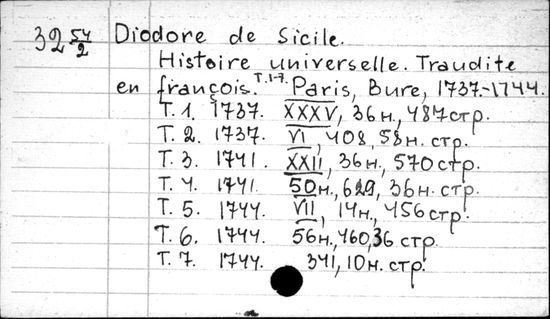 32 54/2 Diodore de Sicile.
Histoire universelle. Traudite
en françois. T.1-7. Paris, Bure, 1737-1744.
T. 1. 1737. XXXV, 36н., 487стр.
T. 2. 1737. VI, 408, 58н. стр.
T. 3. 1741. XXII, 36н., 570стр.
T. 4. 1741. 50н., 629, 36н. стр.
T. 5. 1744. VII, 14н., 456стр.
T. 6. 1744. 56н., 460, 36 стр.
T. 7. 1744. 341, 10н. стр.